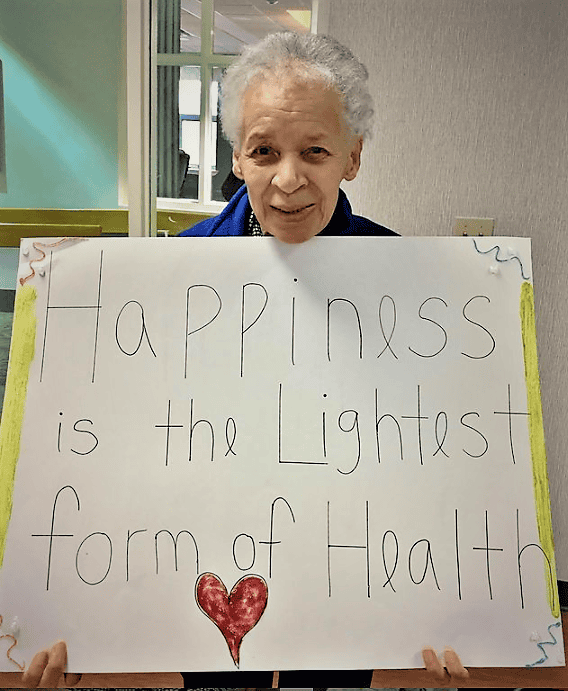 Happiness
is the Lightest
form of Health